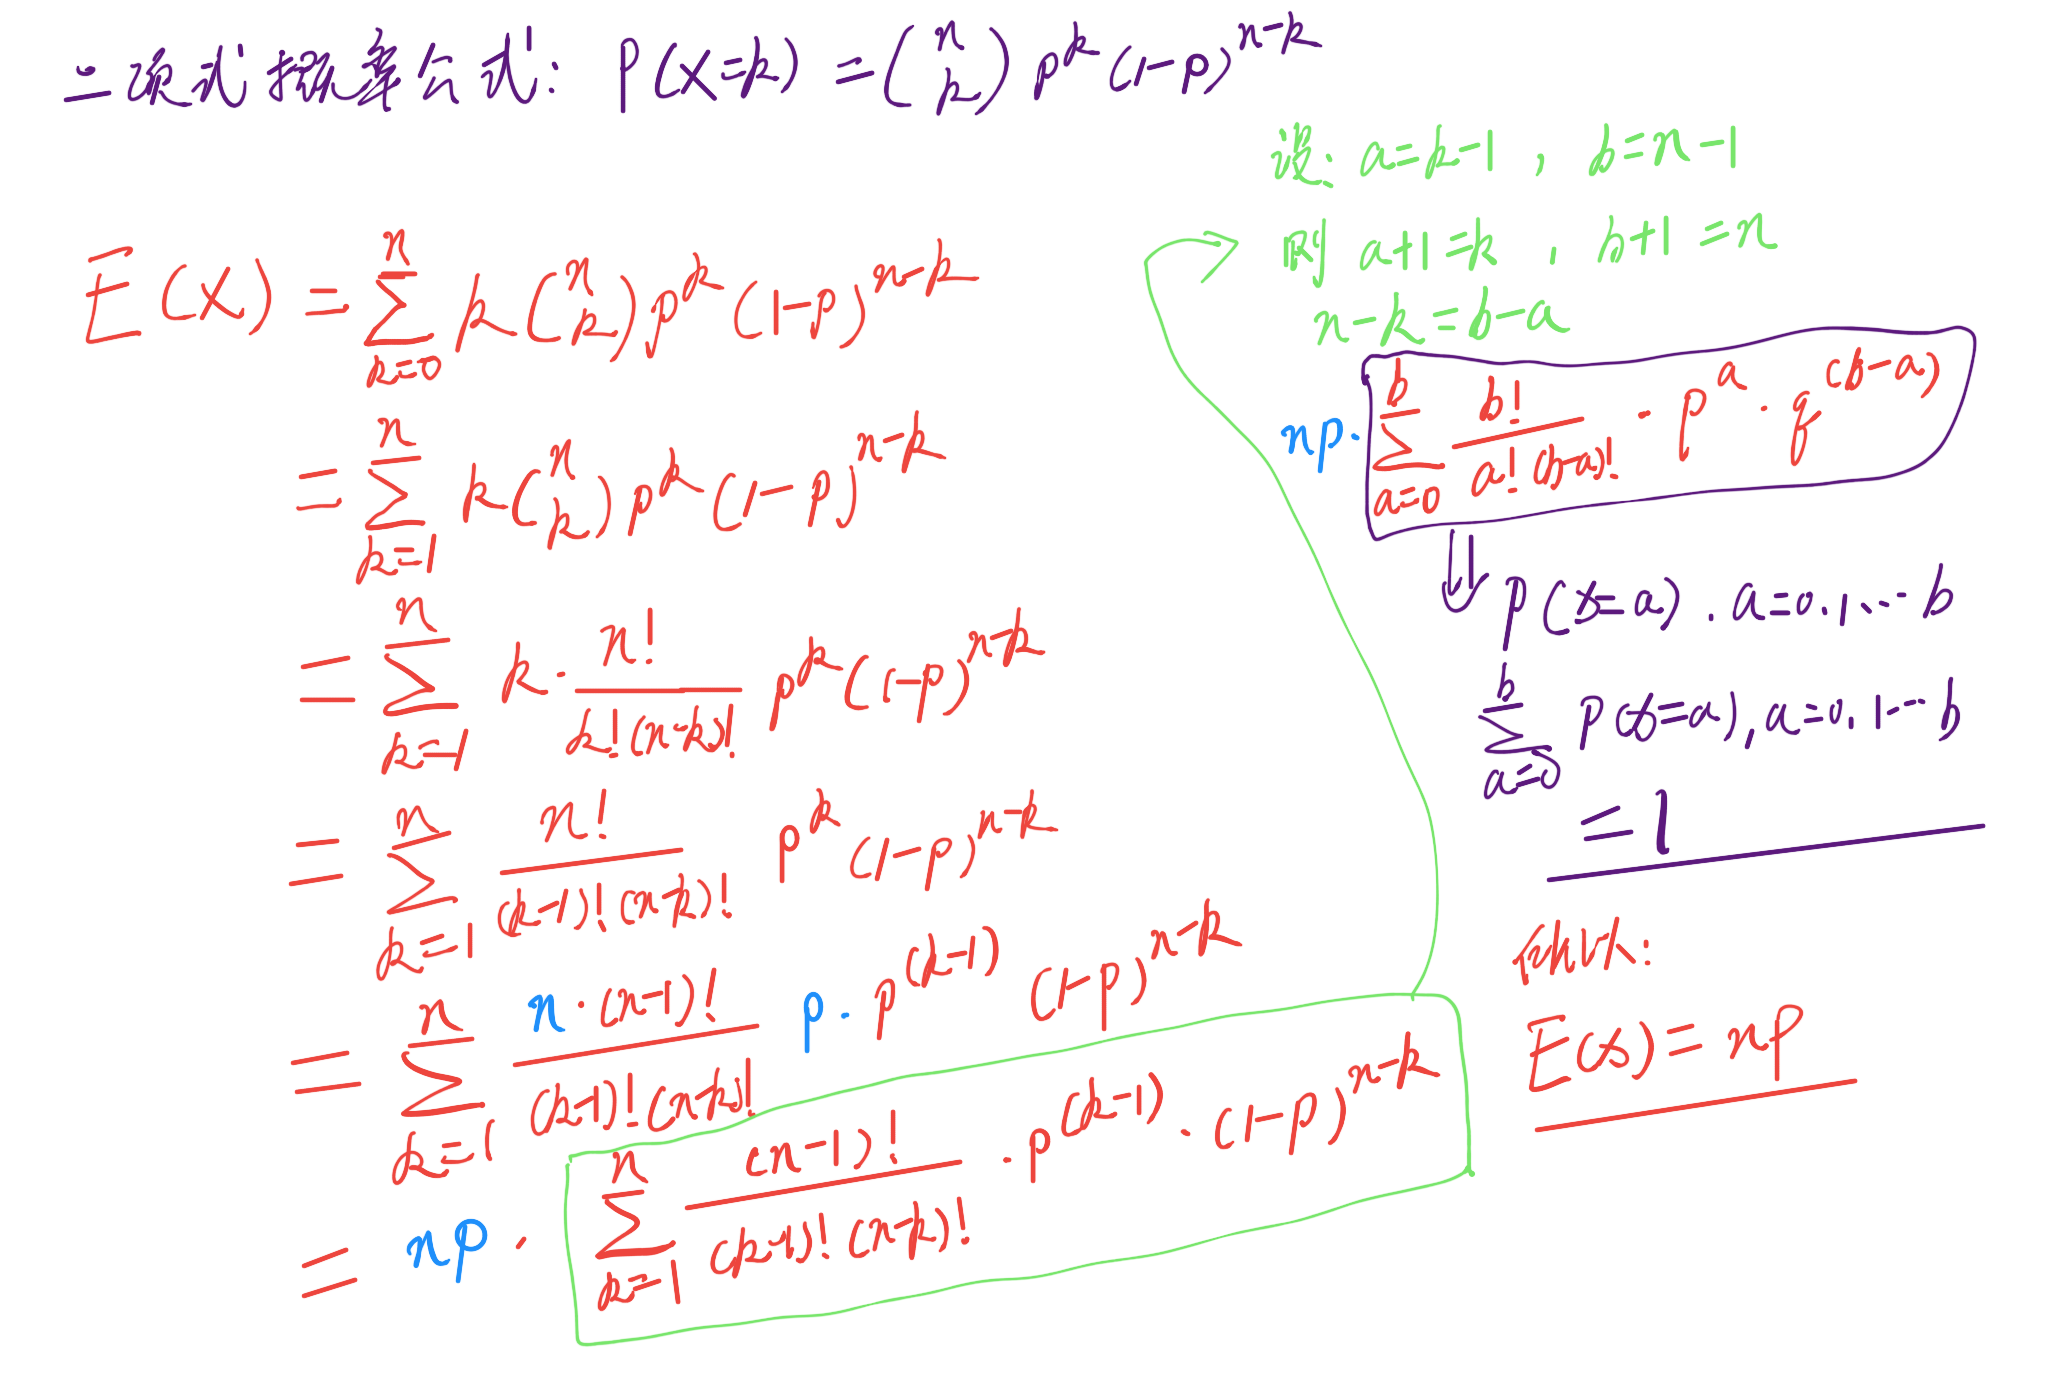 二项式概率公式: P(X=k) = (n k) p^k (1-p)^{n-k}
E(X) = ∑_{k=0}^{n} k (n k) p^k (1-p)^{n-k}
= ∑_{k=1}^{n} k (n k) p^k (1-p)^{n-k}
= ∑_{k=1}^{n} k · n! / k!(n-k)! p^k (1-p)^{n-k}
= ∑_{k=1}^{n} n! / (k-1)!(n-k)! p^k (1-p)^{n-k}
= ∑_{k=1}^{n} n·(n-1)! / (k-1)!(n-k)! p· p^{(k-1)} (1-p)^{n-k}
= np · ∑_{k=1}^{n} (n-1)! / (k-1)!(n-k)! · p^{(k-1)} · (1-p)^{n-k}
设: a=k-1 , b=n-1
则 a+1=k , b+1=n
n-k=b-a
np· ∑_{a=0}^{b} b! / a!(b-a)! · p^a · q^{(b-a)}
⇓ P(x=a) . a=0.1...b
∑_{a=0}^{b} P(x=a), a=0.1...b
=1
E(x)=np